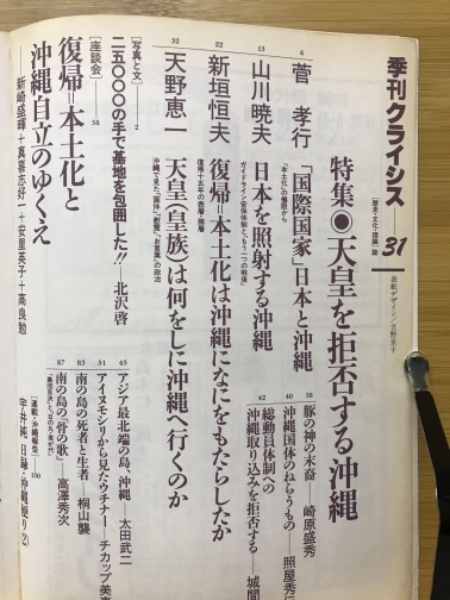 季刊クライシス──31
[歴史・文化・理論]誌
表紙デザイン/立野京子
特集◉天皇を拒否する沖縄
6
菅 孝行
「国際国家」日本と沖縄
「本土化」の極限から
13
山川暁夫
日本を照射する沖縄
ガイドライン安保体制と、もう一つの戦後
22
新垣恒夫
復帰=本土化は沖縄になにをもたらしたか
復帰十五年の表層・裏層
32
天野恵一
天皇(皇族)は何をしに沖縄へ行くのか
38
豚の神の末裔──崎原盛秀
40
沖縄国体のねらうもの──照屋秀
42
総動員体制への
沖縄取り込みを拒否する──城間
[写真と文]──2
二五〇〇〇の手で基地を包囲した!!──北沢啓
[座談会]──58
復帰=本土化と
沖縄自立のゆくえ
新崎盛暉+真喜志好一+安里英子+高良勉
45
アジア最北端の島、沖縄──太田武二
51
アイヌモシリから見たウチナー──チカップ美
83
南の島の死者と生者──桐山襲
87
南の島の「骨の歌」──高澤秀次
「集団自決」と、「日の丸・君が代」
[連載・沖縄報告]──150
宇井純 日録・沖縄便り(2)